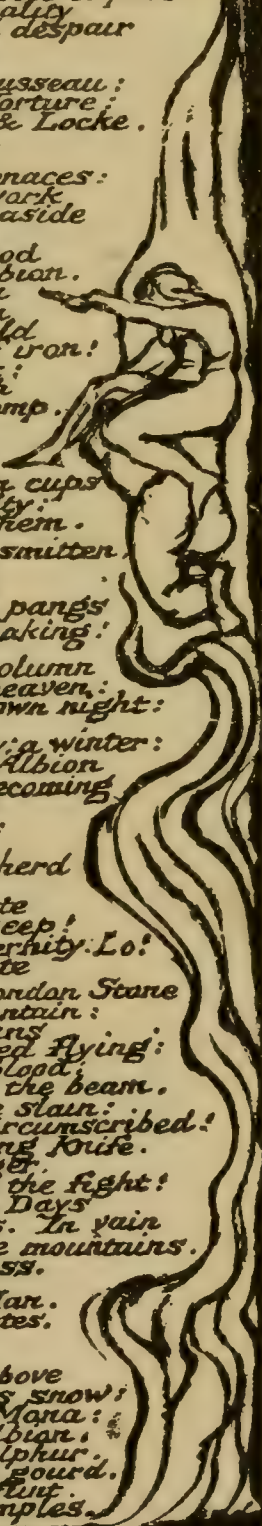 ality
despair
usseau:
orture:
& Locke.
enaces:
work
aside
od
bion.
ld
iron!
:
h
omp.
n cups
ity:
hem.
smitten
pangs
aking!
olumn
heaven:
own night:
y: a winter:
Albion
ecoming
:
herd
te
eep!
ernity. Lo!
te
ondon Stone
ntain:
ans
ed flying:
blood,
the beam.
e slain:
ircumscribed!
ng Knife.
ger.
the fight!
Days
s. In vain
e mountains.
ss.
Man.
tes.
bove
s snow:
Mona:
lbion.
lphur.
gourd.
flint.
mples.